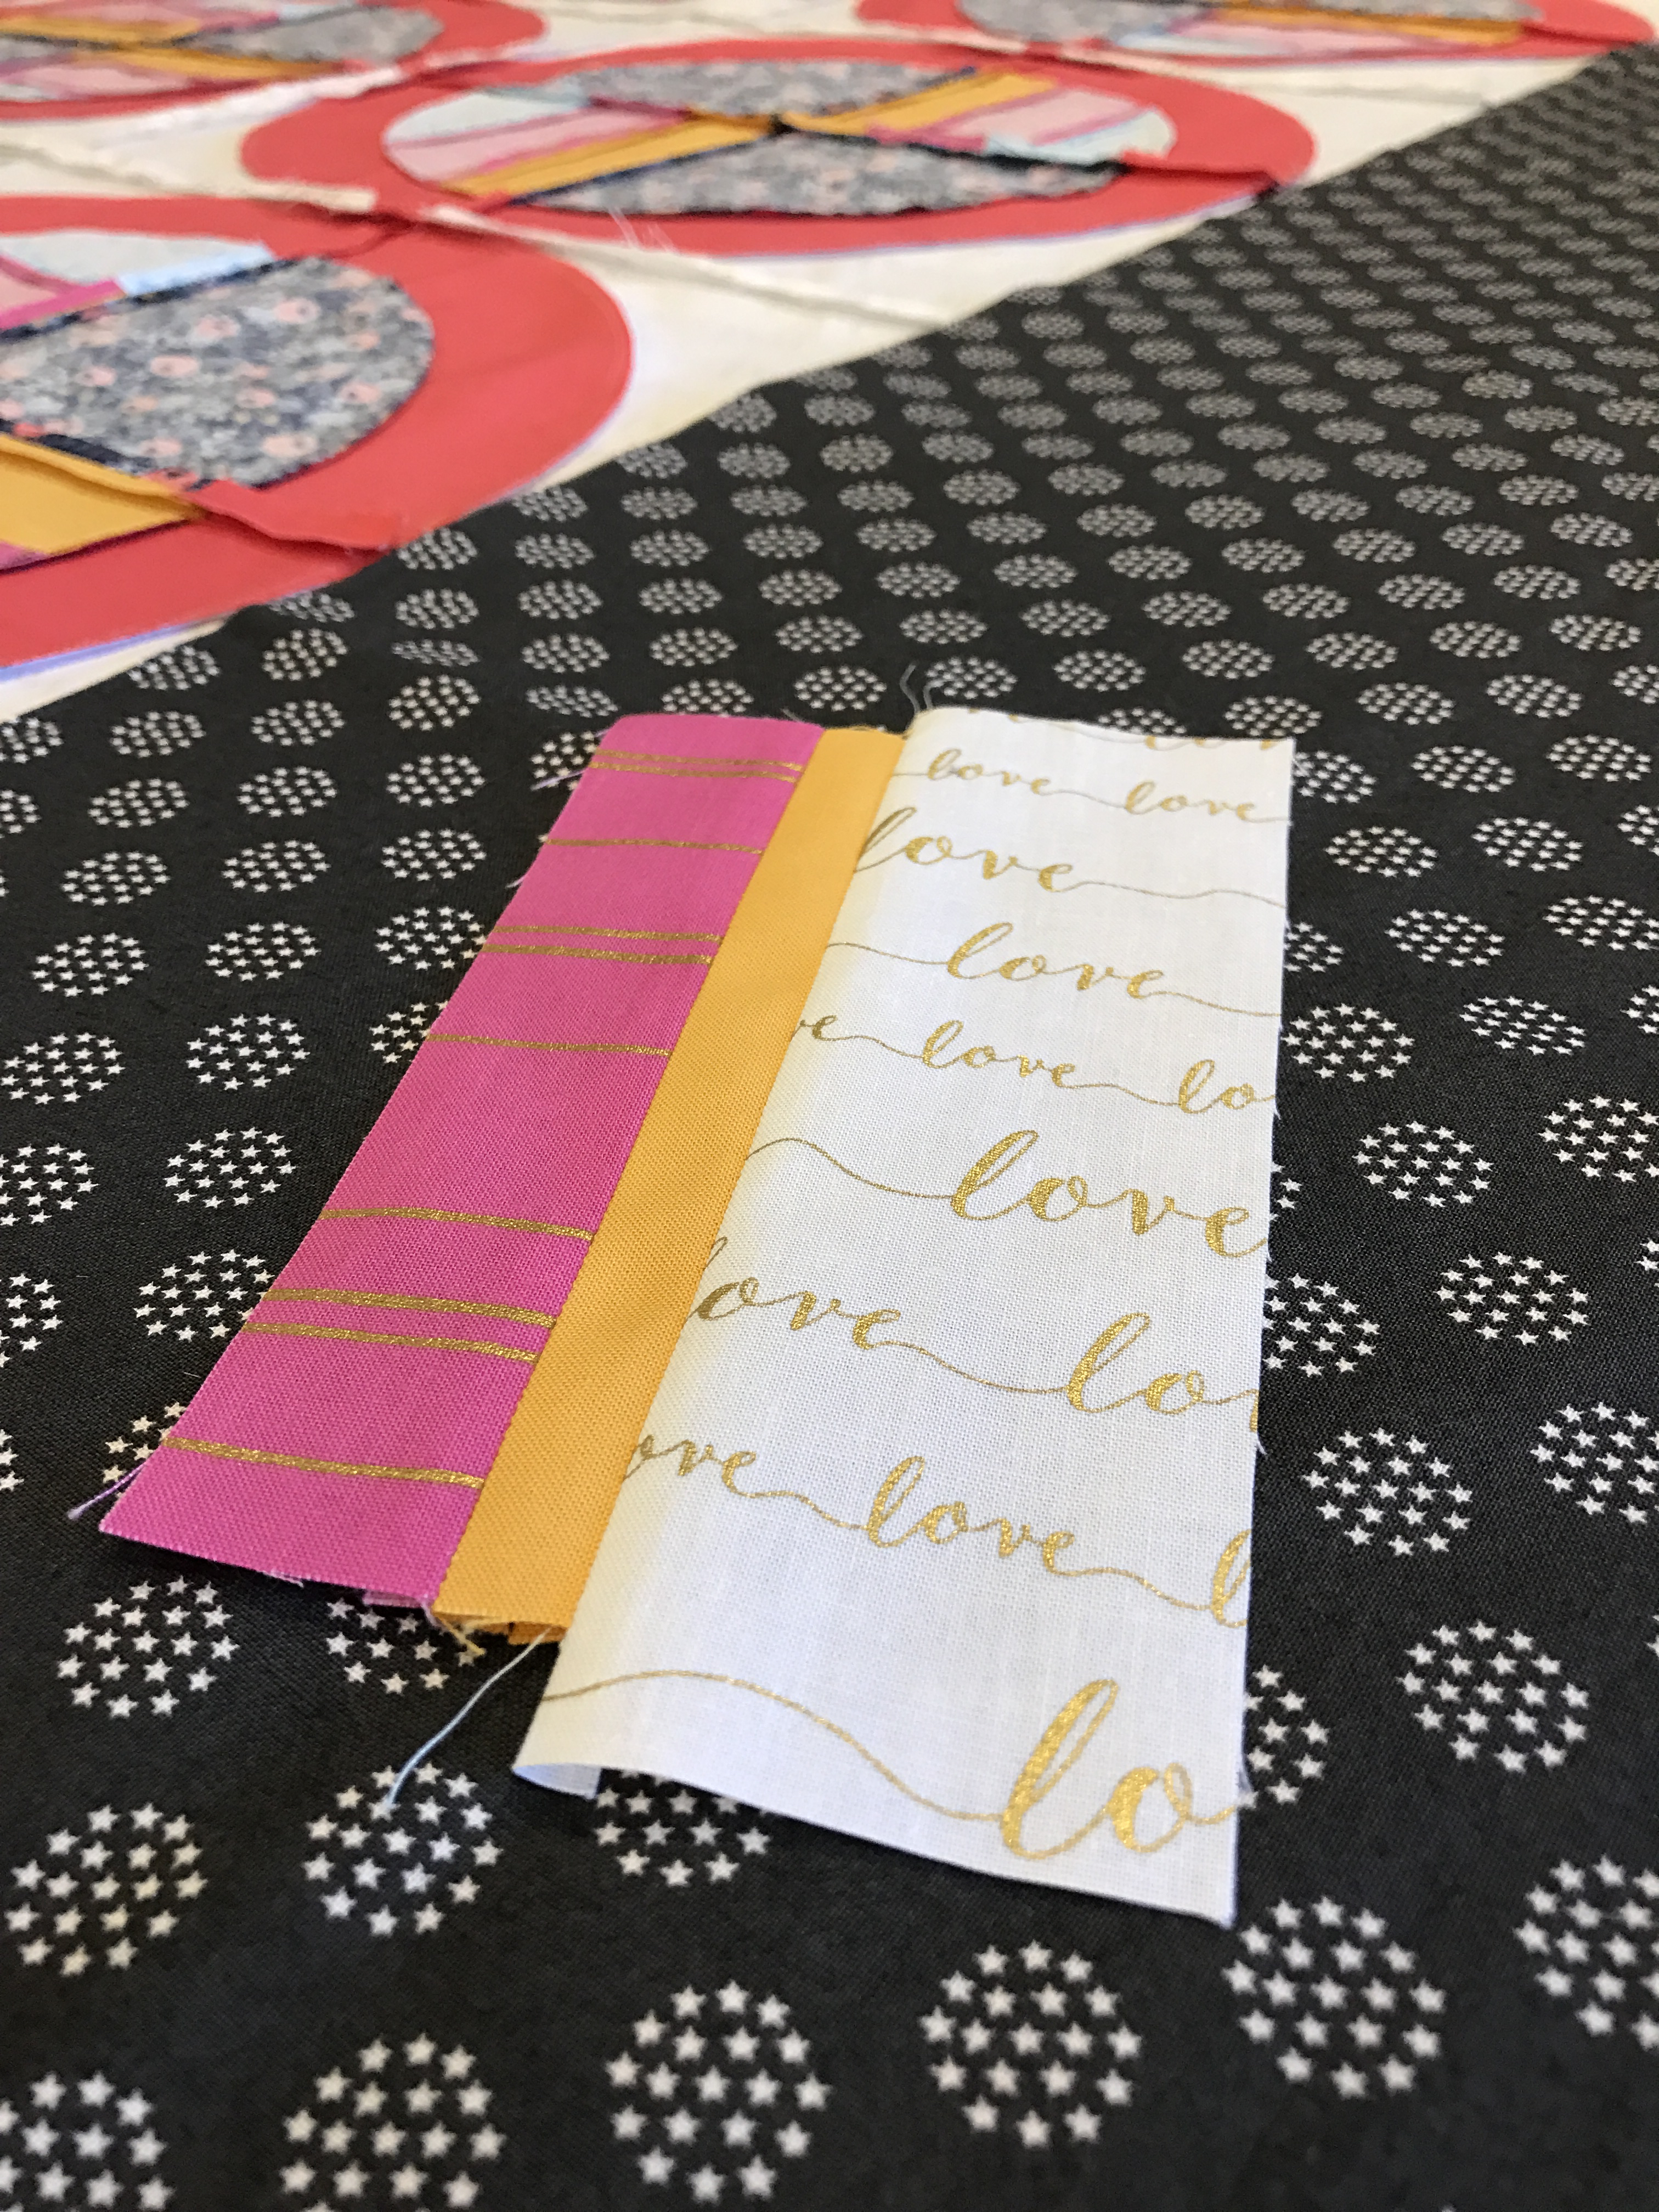 love love
love
love
ve love lo
love
love lo
ove love l
lo